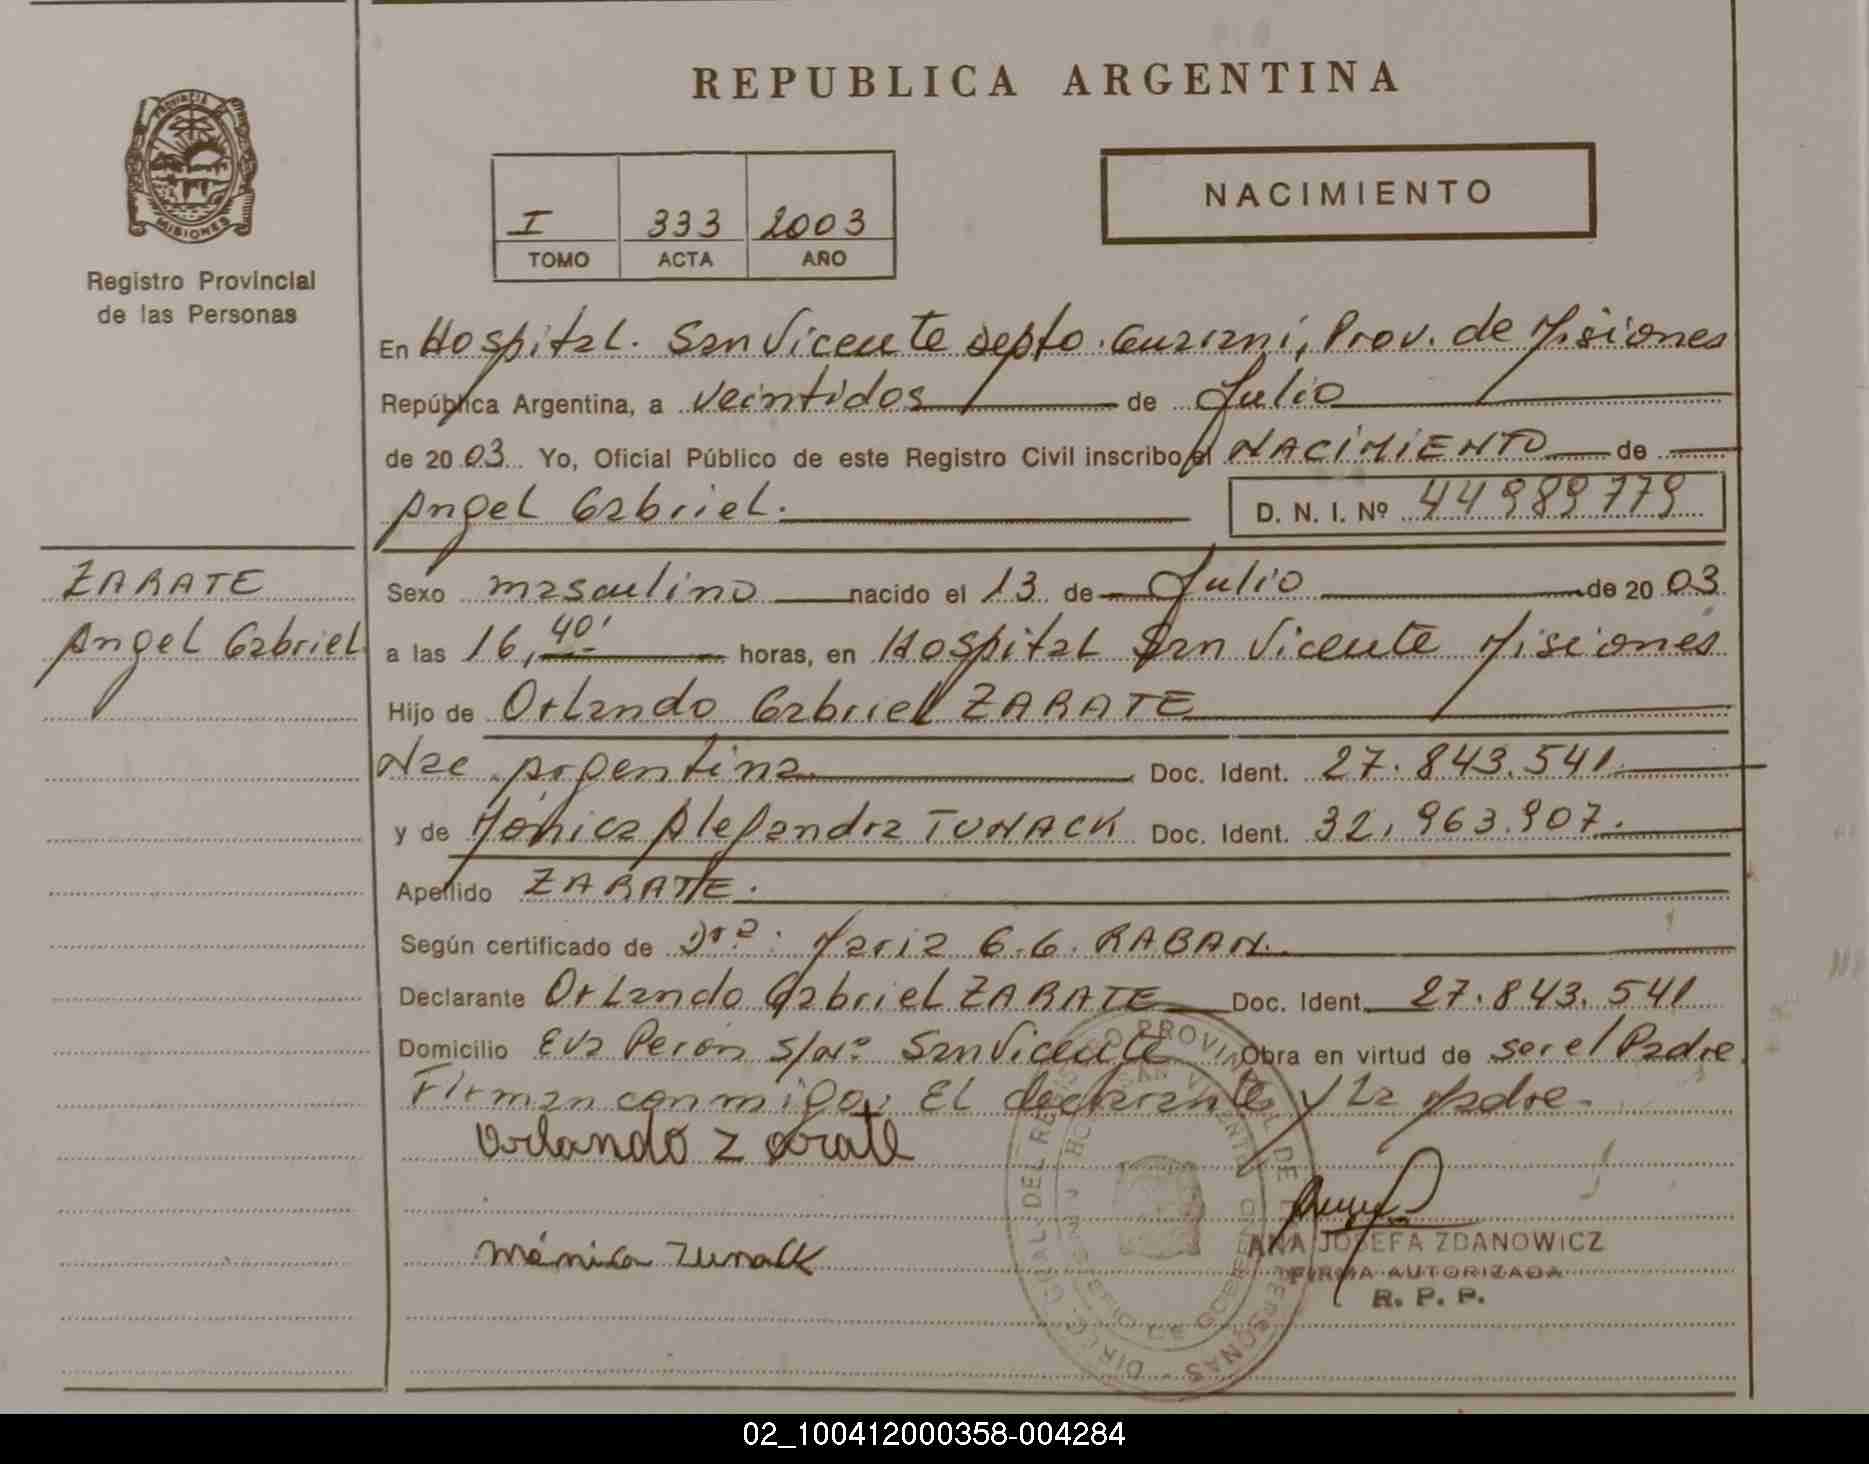 REPUBLICA ARGENTINA
PROVINCIA DE
MISIONES
Registro Provincial
de las Personas
I 333 2003
TOMO ACTA AÑO
NACIMIENTO
En Hospital. San Vicente Depto. Guarani, Prov. de Misiones
República Argentina, a veintidos de Julio
de 2003 Yo, Oficial Público de este Registro Civil inscribo el NACIMIENTO de
Angel Gabriel.
D. N. I. Nº 44989779
ZARATE
Angel Gabriel
Sexo masculino nacido el 13 de Julio de 2003
a las 16,40' horas, en Hospital San Vicente Misiones
Hijo de Orlando Gabriel ZARATE
Nac. Argentina Doc. Ident. 27.843.541
y de Mónica Alejandra TUNACK Doc. Ident. 32.963.907.
Apellido ZARATE.
Según certificado de Dra. Maria G. G. RABAN.
Declarante Orlando Gabriel ZARATE Doc. Ident. 27.843.541
Domicilio Eva Perón s/nº San Vicente Obra en virtud de ser el Padre
Firman conmigo: El declarante y La Madre.
Orlando Zarate
Mónica Tunack
ANA JOSEFA ZDANOWICZ
FIRMA AUTORIZADA
R. P. P.
02_100412000358-004284